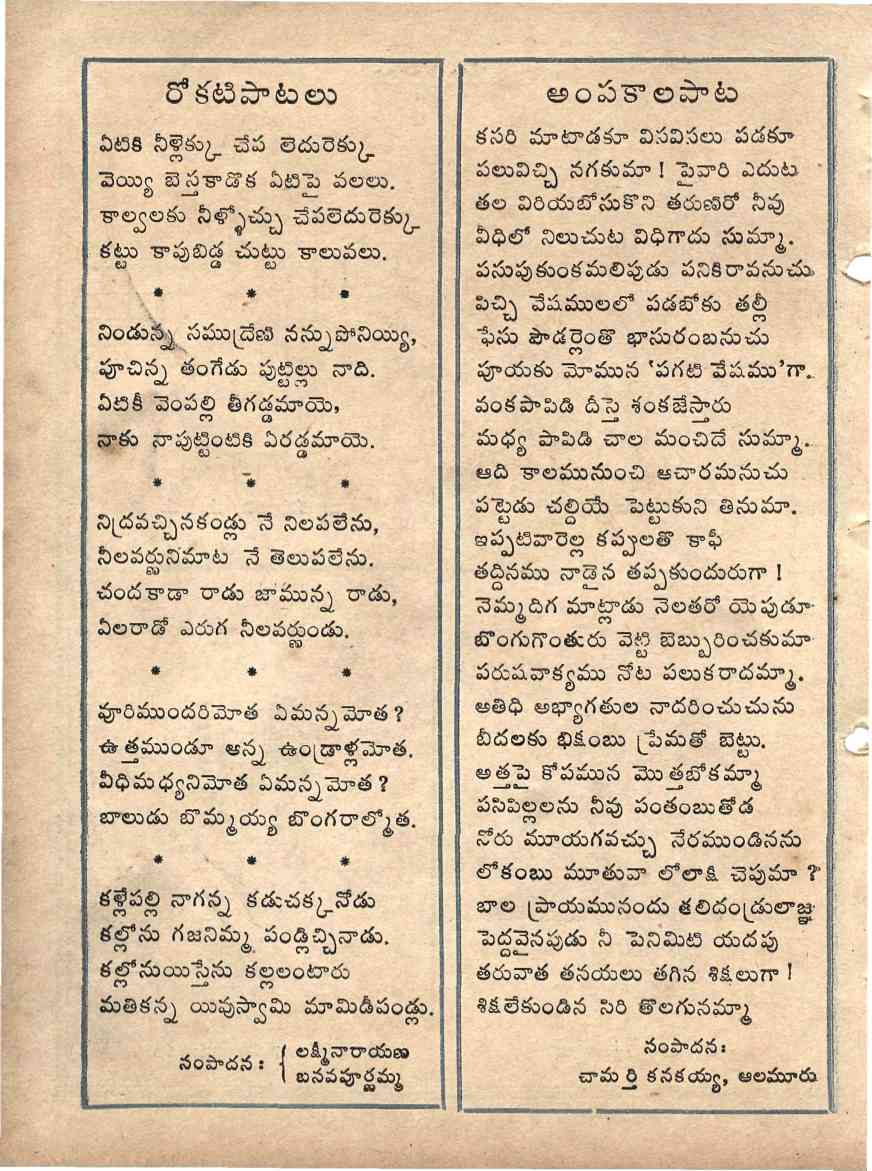 రోకటిపాటలు
ఏటికి నీళ్లెక్కు చేప లెదురెక్కు
వెయ్యి బెస్తకాడొక ఏటిపై వలలు.
కాల్వలకు నీళ్ళోచ్చు చేపలెదురెక్కు
కట్టు కాపుబిడ్డ చుట్టు కాలువలు.
* * *
నిండున్న సముద్రేణి నన్నుపోనియ్యి,
పూచిన్న తంగేడు పుట్టిల్లు నాది.
ఏటికీ వెంపల్లి తీగడ్డమాయె,
నాకు నాపుట్టింటికి ఏరడ్డమాయె.
* * *
నిద్రవచ్చినకండ్లు నే నిలపలేను,
నీలవర్ణునిమాట నే తెలుపలేను.
చందకాడా రాడు జామున్న రాడు,
ఏలరాడో ఎరుగ నీలవర్ణుండు.
* * *
వూరిముందరిమోత ఏమన్నమోత?
ఉత్తముండూ అన్న ఉండ్రాళ్లమోత.
వీధిమధ్యనిమోత ఏమన్నమోత?
బాలుడు బొమ్మయ్య బొంగరాల్మోత.
* * *
కళ్లేపల్లి నాగన్న కడుచక్కనోడు
కల్లోను గజనిమ్మ పండ్లిచ్చినాడు.
కల్లోనుయిస్తేను కల్లలంటారు
మతికన్న యివుస్వామి మామిడీపండ్లు.
సంపాదన : { లక్ష్మీనారాయణ
బసవపూర్ణమ్మ
అంపకాలపాట
కసరి మాటాడకూ విసవిసలు పడకూ
పలువిచ్చి నగకుమా! పైవారి ఎదుట
తల విరియబోసుకొని తరుణిరో నీవు
వీధిలో నిలుచుట విధిగాదు సుమ్మా.
పసుపుకుంకమలిపుడు పనికిరావనుచు
పిచ్చి వేషములలో పడబోకు తల్లీ
ఫేసు పౌడర్లెంతొ భాసురంబనుచు
పూయకు మోమున 'పగటి వేషము'గా.
వంకపాపిడి దీస్తె శంకజేస్తారు
మధ్య పాపిడి చాల మంచిదే సుమ్మా.
ఆది కాలమునుంచి ఆచారమనుచు
పట్టెడు చల్దియే పెట్టుకుని తినుమా.
ఇప్పటివారెల్ల కప్పులతొ కాఫీ
తద్దినము నాడైన తప్పకుందురుగా!
నెమ్మదిగ మాట్లాడు నెలతరో యెపుడూ
బొంగుగొంతురు వెట్టి బెబ్బురించకుమా
పరుషవాక్యము నోట పలుకరాదమ్మా.
అతిధి అభ్యాగతుల నాదరించుచును
బీదలకు భిక్షంబు ప్రేమతో బెట్టు.
అత్తపై కోపమున మొత్తబోకమ్మా
పసిపిల్లలను నీవు పంతంబుతోడ
నోరు మూయగవచ్చు నేరముండినను
లోకంబు మూతువా లోలాక్షి చెపుమా?
బాల ప్రాయమునందు తలిదండ్రులాజ్ఞ
పెద్దవైనపుడు నీ పెనిమిటి యదపు
తరువాత తనయలు తగిన శిక్షలుగా!
శిక్షలేకుండిన సిరి తొలగునమ్మా
సంపాదన:
చామర్తి కనకయ్య, ఆలమూరు